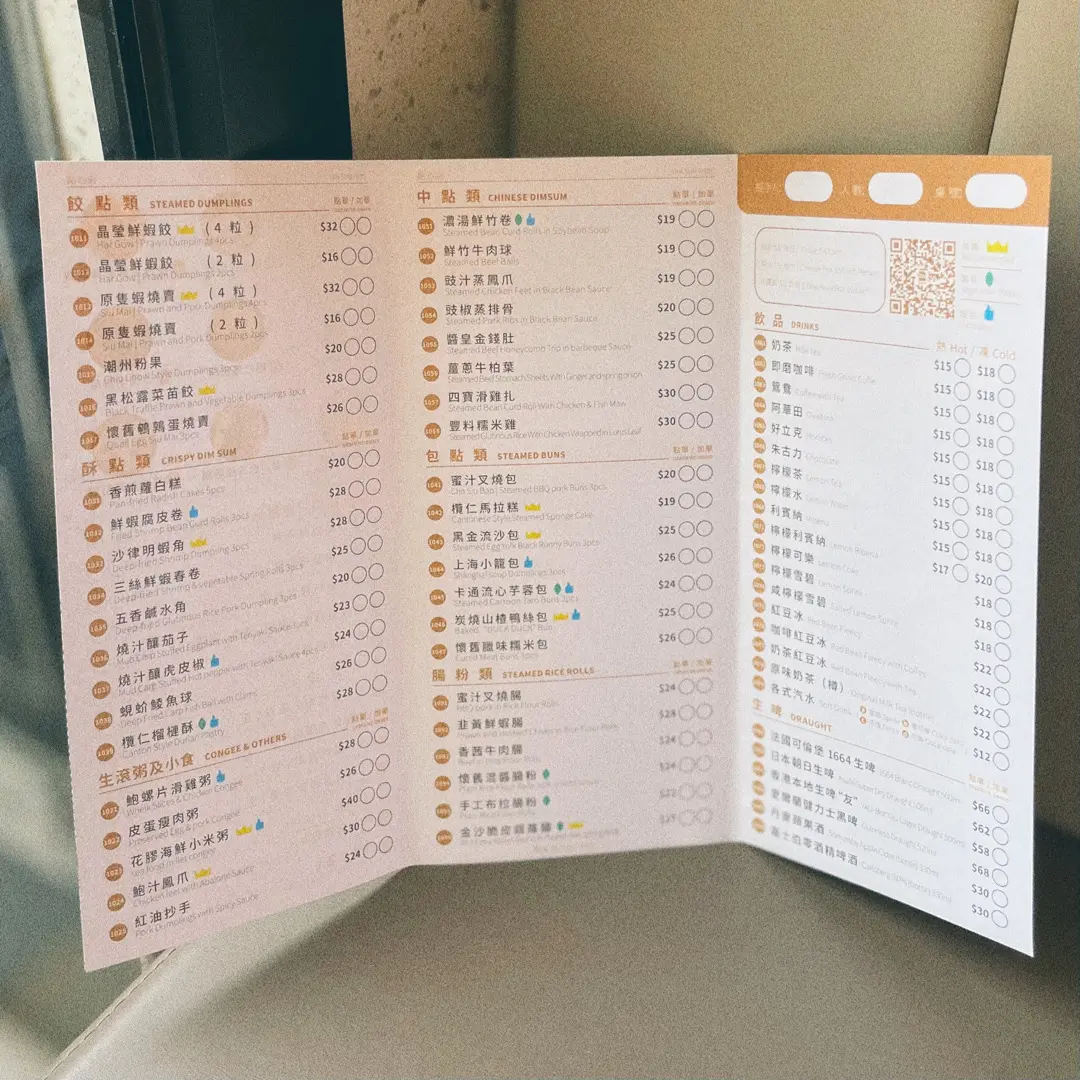 餃點類 STEAMED DUMPLINGS 點單 / 加單
1011 晶瑩鮮蝦餃 (4 粒) $32
Har Gow | Prawn Dumplings 4pcs
1012 晶瑩鮮蝦餃 (2 粒) $16
Har Gow | Prawn Dumplings 2pcs
1013 原隻蝦燒賣 (4 粒) $32
Siu Mai | Prawn and Pork Dumplings 4pcs
1014 原隻蝦燒賣 (2 粒) $16
Siu Mai | Prawn and Pork Dumplings 2pcs
1015 潮州粉果 $20
Chiu Chow Style Dumplings 3pcs
1016 黑松露菜苗餃 $28
Black Truffle Prawn and Vegetable Dumplings 3pcs
1017 懷舊鵪鶉蛋燒賣 $26
Quail Egg Siu Mai 3pcs
酥點類 CRISPY DIM SUM 點單 / 加單
1031 香煎蘿白糕 $20
Pan-fried Radish Cakes 3pcs
1032 鮮蝦腐皮卷 $28
Fried Shrimp Bean Curd Rolls 3pcs
1033 沙律明蝦角 $28
Deep-fried Shrimp Dumpling 3pcs
1034 三絲鮮蝦春卷 $25
Deep-fried Shrimp & Vegetable Spring Rolls 3pcs
1035 五香鹹水角 $20
Deep-fried Glutinous Rice Pork Dumpling 3pcs
1036 燒汁釀茄子 $23
Mud Carp Stuffed Eggplant with Teriyaki Sauce
1037 燒汁釀虎皮椒 $24
Mud Carp Stuffed Hot pepper with Teriyaki Sauce 4pcs
1038 蜆蚧鯪魚球 $26
Deep Fried Carp Fish Ball with Clams
1039 欖仁榴槤酥 $28
Canton Style Durian Pastry
生滾粥及小食 CONGEE & OTHERS 點單 / 加單
鮑螺片滑雞粥 $28
Whelk Slices & Chicken Congee
皮蛋瘦肉粥 $26
Preserved Egg & pork Congee
1023 花膠海鮮小米粥 $40
1024 鮑汁鳳爪 $30
Chicken feet with Abalone Sauce
1025 紅油抄手 $24
Pork Dumplings with Spicy Sauce
中點類 CHINESE DIMSUM 點單 / 加單
1051 濃湯鮮竹卷 $19
Steamed Bean Curd Rolls in Soybean Soup
1052 鮮竹牛肉球 $19
Steamed Beef Balls
1053 豉汁蒸鳳爪 $19
Steamed Chicken Feet in Black Bean Sauce
1054 豉椒蒸排骨 $20
Steamed Pork Ribs in Black Bean Sauce
1055 醬皇金錢肚 $25
Steamed Beef Honeycomb Trip in barbeque Sauce
1056 薑蔥牛柏葉 $25
Steamed Beef Stomach Sheets With Ginger and spring onion
1057 四寶滑雞扎 $30
Steamed Bean Curd Roll Wan Chicken & Fish Maw
1058 豐料糯米雞 $30
Steamed Glutinous Rice With Chicken Wrapped in Lotus Leaf
包點類 STEAMED BUNS 點單 / 加單
1041 蜜汁叉燒包 $20
Cha Siu Bao | Steamed BBQ pork Buns 3pcs
1042 欖仁馬拉糕 $19
Cantonese Style Steamed Sponge Cake
1043 黑金流沙包 $25
Steamed Egg Yolk Black Runny Buns 3pcs
1044 上海小籠包 $26
Shanghai soup Dumplings 3pcs
1045 卡通流心芋蓉包 $24
Steamed Cartoon Taro Buns 3pcs
1046 炭燒山楂鴨絲包 $25
Baked "DUCK DUCK" Bun
1047 懷舊臘味糯米包 $26
Cured Meat Buns 3pcs
腸粉類 STEAMED RICE ROLLS 點單 / 加單
蜜汁叉燒腸 $24
BBQ pork in Rice Flour Rolls
韭黃鮮蝦腸 $28
香茜牛肉腸 $24
懷舊混醬腸粉 $24
手工布拉腸粉 $22
金沙脆皮
人數: 檯號:
飲品 DRINKS 熱 Hot / 凍 Cold
奶茶 Milk Tea $15 $18
即磨咖啡 Fresh Grind Coffee $15 $18
鴛鴦 Coffee with Tea $15 $18
阿華田 Ovaltine $15 $18
好立克 Horlicks $15 $18
朱古力 Chocolate $15 $18
檸檬茶 Lemon Tea $15 $18
檸檬水 Lemon Water $15 $18
利賓納 Ribena $15 $18
檸檬利賓納 Lemon Ribena $17 $20
檸檬可樂 Lemon Coke $18
檸檬雪碧 Lemon Sprite $18
咸檸檬雪碧 Salted Lemon Sprite $18
紅豆冰 Red Bean Freezy $22
咖啡紅豆冰 Red Bean Freezy with Coffee $22
奶茶紅豆冰 Red Bean Freezy with Tea $22
原味奶茶（樽） Original Milk Tea (Bottle) $22
各式汽水 Soft Drink $12
生啤 DRAUGHT 點單 / 加單
法國可倫堡 1664 生啤 1664 Blanc Draught 500ml $66
日本朝日生啤 Asahi Super Dry Draught 500ml $62
香港本地生啤 "友" Yau Gweilo Lager Draught 500ml $58
愛爾蘭健力士黑啤 Guinness Draught 520ml $68
丹麥蘋果酒 Somersby Apple Cider (Bottle) 330ml $30
嘉士伯零酒精啤酒 Carlsberg 0.0% (Bottle) 330ml $30